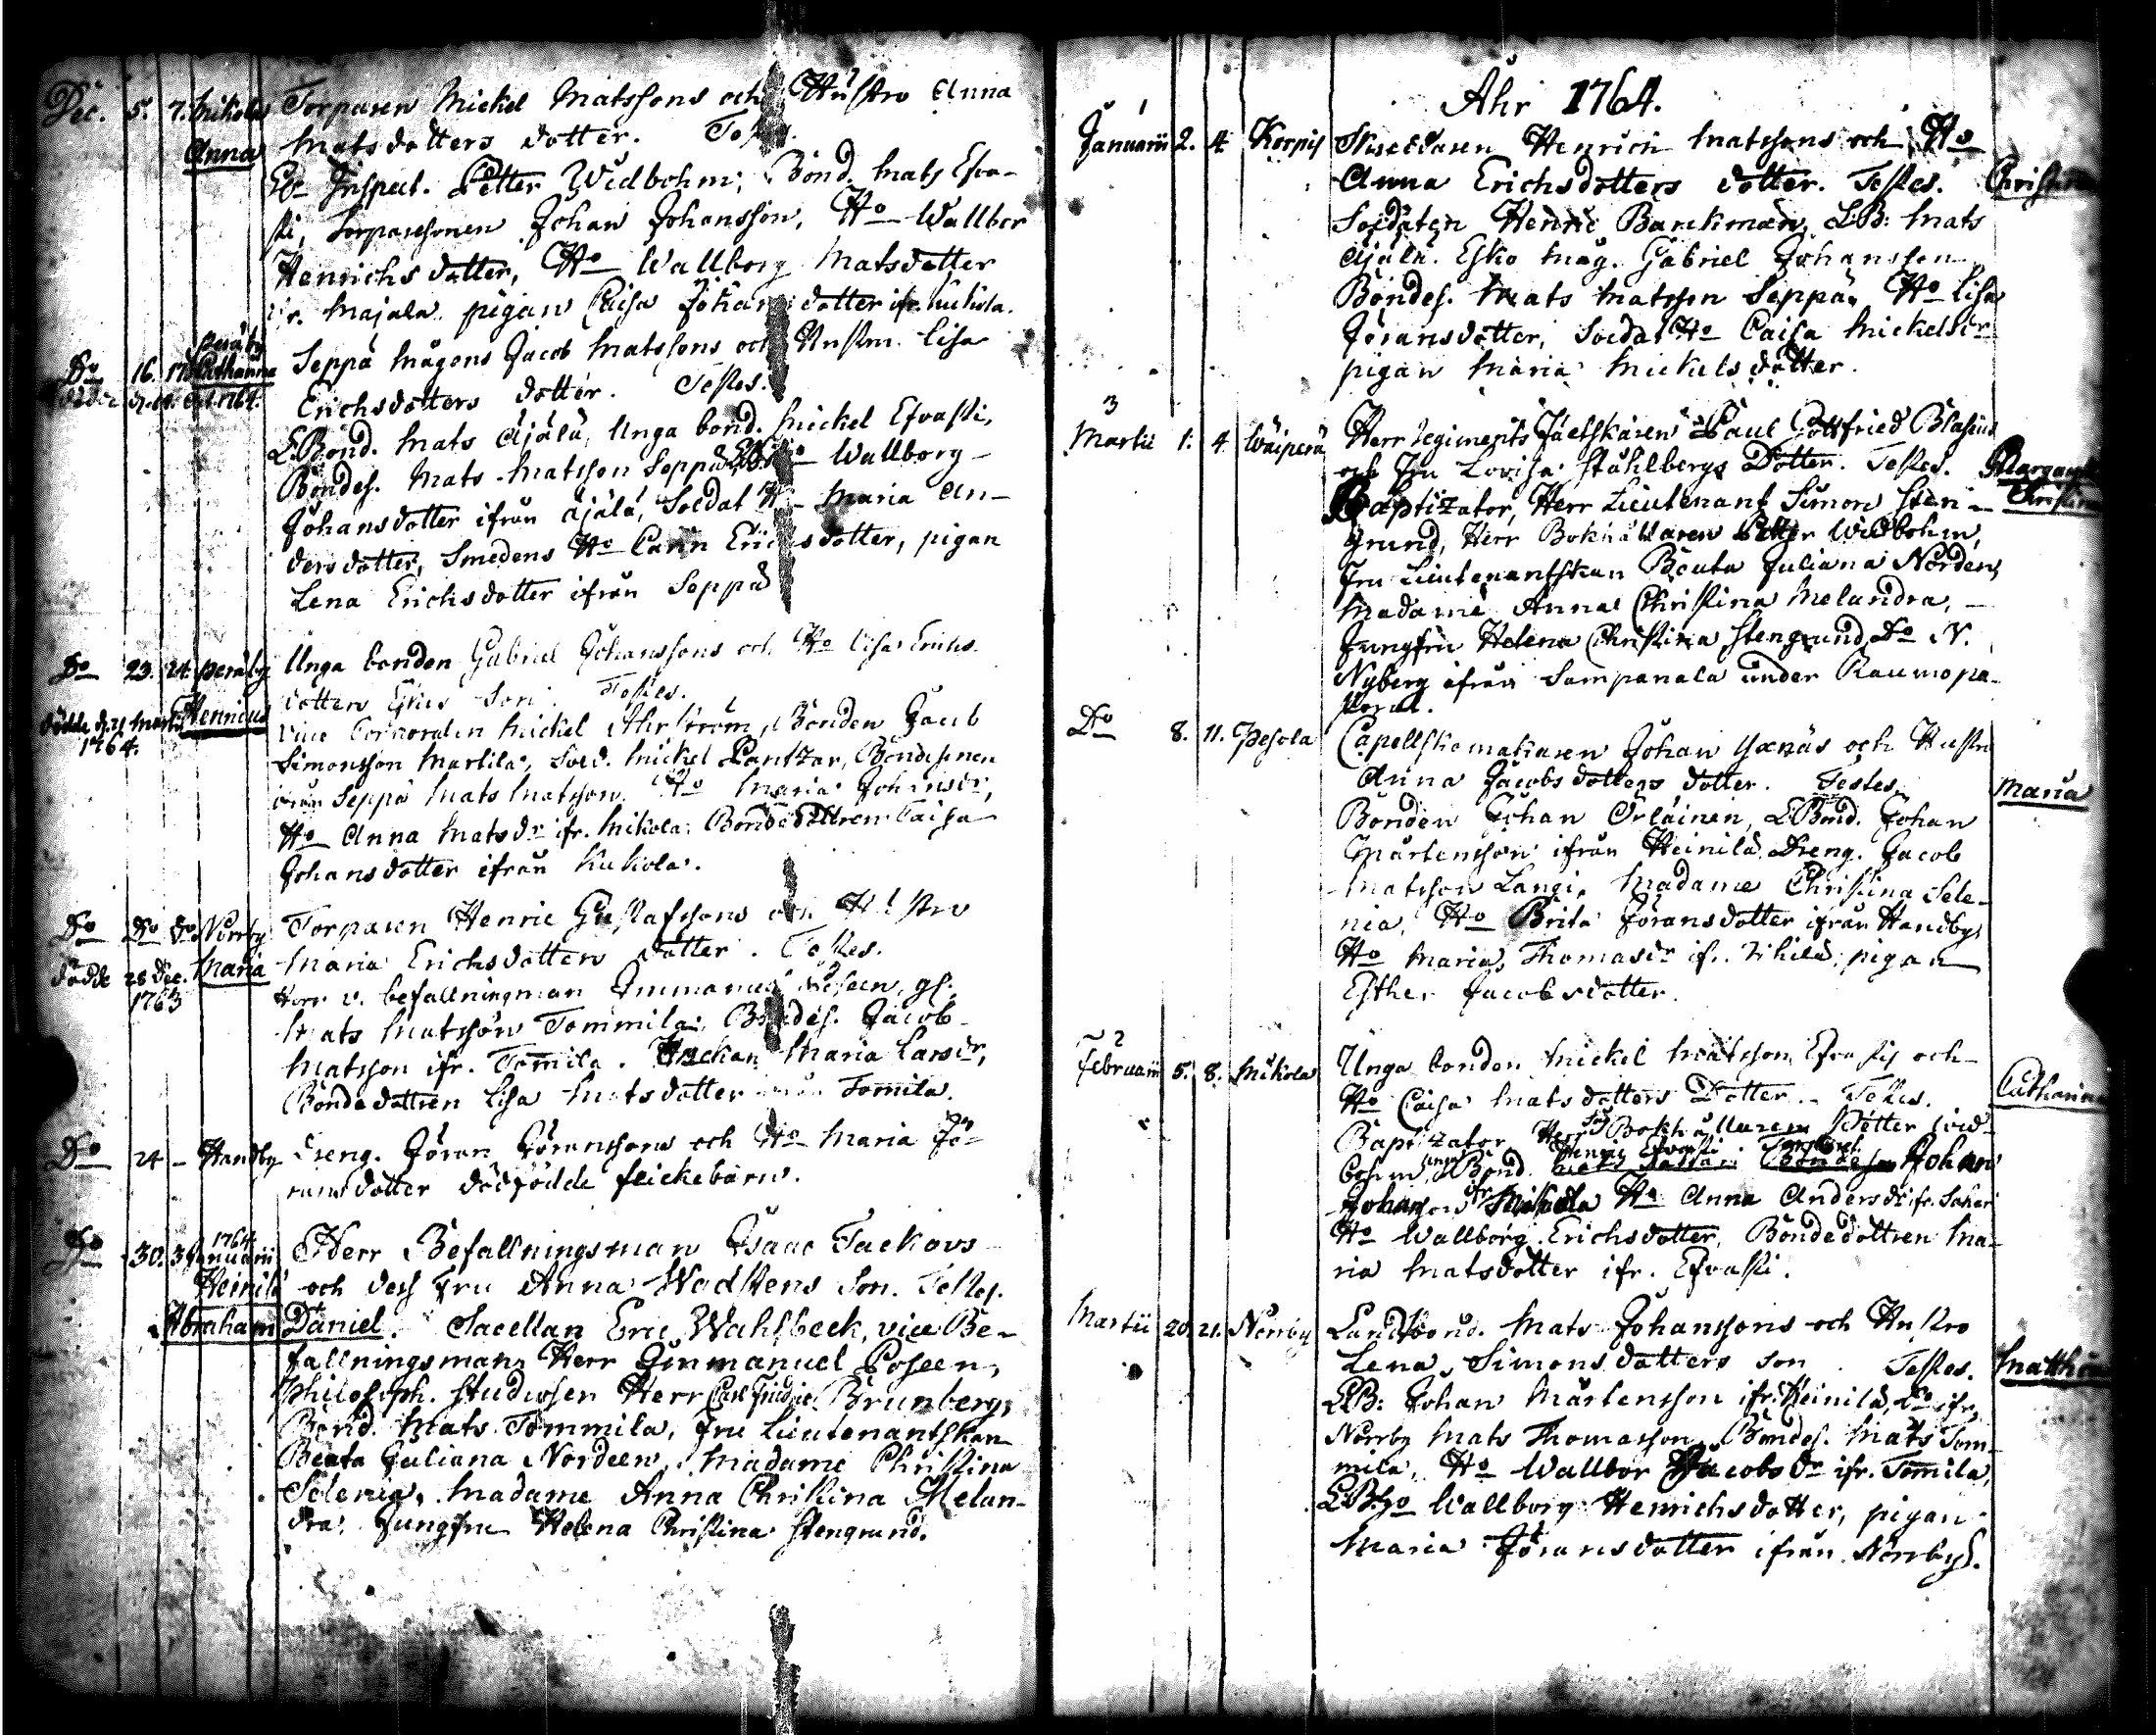 Dec. 5. 7. Mikola Torparen Mickel Matssons och Hustro Anna
Anna Matsdotters dotter.
Inspect. Petter Widbohm; Bond. Mats Efva-
sti, Torparesonen Johan Johansson, Ho Wallbor
Henrichsdotter, Ho Wallborg Matsdotter
ifr. Majala. pigan Caisa Johansdotter ifr. Kukola.
Peräby
Do 16. 17. Catharina Seppä Mågens Jacob Matssons och Hustru Lisa
Erichsdotters dotter. Testes.
LBond. Mats Äjälä, Unga bond. Mickel Efvasti,
Bondes. Mats Matsson Seppä, Ho Wallborg
Johansdotter ifrån Äjälä, Soldat Ho Maria An-
dersdotter, Smedens Ho Carin Erichsdotter, pigan
Lena Erichsdotter ifrån Seppä
Do 23. 24. Peräby Unga bonden Gabriel Johanssons och Ho Lisa Erichs-
dotters son. Testes.
dödde d. 21 Martii Henricus
1764.
vice Corporalen Mickel Åhrström, Bonden Jacob
Simonsson Martila, Sold. Mickel Pantzar, Bondesonen
ifrån Seppä Mats Matsson. Ho Maria Johansdr,
Ho Anna Matsdr ifr. Mikola; Bondedottren Caisa
Johansdotter ifrån Kukola.
Do Do do Norrby Torparen Henric Gustafssons och Hustro
dödde 28 Dec. Maria Maria Erichsdotters dotter. Testes.
1763
Herr v. befallningman Immanuel Poseen, gl.
Mats Matsson Tommila; Bondes. Jacob
Matsson ifr. Tomila. Maria Larsdr,
Bondedottren Lisa Matsdotter ifrån Tomila.
Do 24 – Handby Dreng. Jöran Göranssons och Ho Maria Jö-
ransdotter dödfödde flickebarn.
1764
Do 30. 3 Januarii Herr Befallningsman Isaac Tackovs
Heinilä och dess Fru Anna Wadstens Son. Testes.
Abraham Daniel. Sacellan Eric Wahlbeck, vice Be-
fallningsman Herr Immanuel Poseen,
Philosoph. Studiosen Herr Carl Fridric Brunberg,
Bond. Mats Tommila, Fru Lieutenantskan
Beata Juliana Nordeen, Madame Christina
Selenia, Madame Anna Christina Melan-
dra; Jungfru Helena Christina Stengrund.
Åhr 1764.
1
Januarii 2. 4 Korpis Henrich Matssons och Ho
Anna Erichsdotters dotter. Testes. Christina
Soldaten Henric Barckman, LB: Mats
Äjälä. Esko Måg. Gabriel Johansson
Bondes. Mats Matsson Seppä, Ho Lisa
Jöransdotter, Soldat Ho Caisa Mickelsdr
pigan Maria Mickelsdotter.
3
Martii 1. 4 Wäiperä Herr Regiments Fältskären Paul Gottfried Blasius
och Fru Lovisa Ståhlbergs Dotter. Testes. Margareta
Baptizator, Herr Lieutenant Simon Sten- Christina
grund, Herr Bokhållaren Petter Widbohm,
Fru Lieutenantskan Beata Juliana Norden,
Madame Anna Christina Melandra,
Jungfru Helena Christina Stengrund, Do N.
Nyberg ifrån Sampanala under Raumo pa-
storat.
Do 8. 11. Pesola Capellskomakaren Johan Yxnäs och Hustru
Anna Jacobsdotters dotter. Testes. Maria
Bonden Johan Örläinen, LBond. Johan
Mårtensson ifrån Heinilä. Dreng. Jacob
Matsson Langi, Madame Christina Sele-
nia, Ho Brita Jöransdotter ifrån Handby,
Ho Maria Thomasdr pigan
Esther Jacobsdotter.
2
Februarii 5. 8. Mikola Unga bonden Mickel Matsson Efvastis och
Ho Caisa Matsdotters Dotter. Testes. Catharina
Baptizator Herr Bokhållaren Petter Wid-
bohm, unga Bond. Henric Efvasti Johan
Johansson ifr Mikola Ho Anna Andersdr ifr. Sahari
Ho Wallborg Erichsdotter, Bondedottren Ma-
ria Matsdotter ifr. Efvasti.
Martii 20. 21. Norrby Landbond. Mats Johanssons och Hustro
Lena Simonsdotters son. Testes. Matthias
LB: Johan Mårtensson ifr. Heinilä, Do ifr.
Norrby Mats Thomasson, Bondes. Mats Tom-
mila, Ho Wallbor Jacobsdr ifr. Tomila,
LB:Ho Wallborg Henrichsdotter, pigan
Maria Jöransdotter ifrån Norrby.